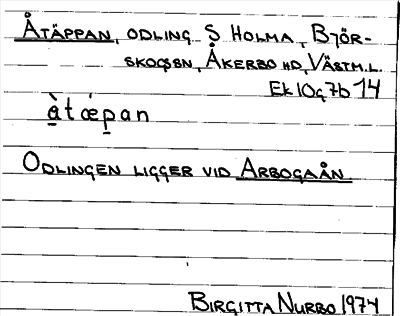 ÅTÄPPAN, ODLING S HOLMA, BJÖR-
SKOGSSN, ÅKERBO HD, VÄSTM.L.
EK 10G7b 14
å̀tæpan
ODLINGEN LIGGER VID ARBOGAÅN.
BIRGITTA NURBO 1974